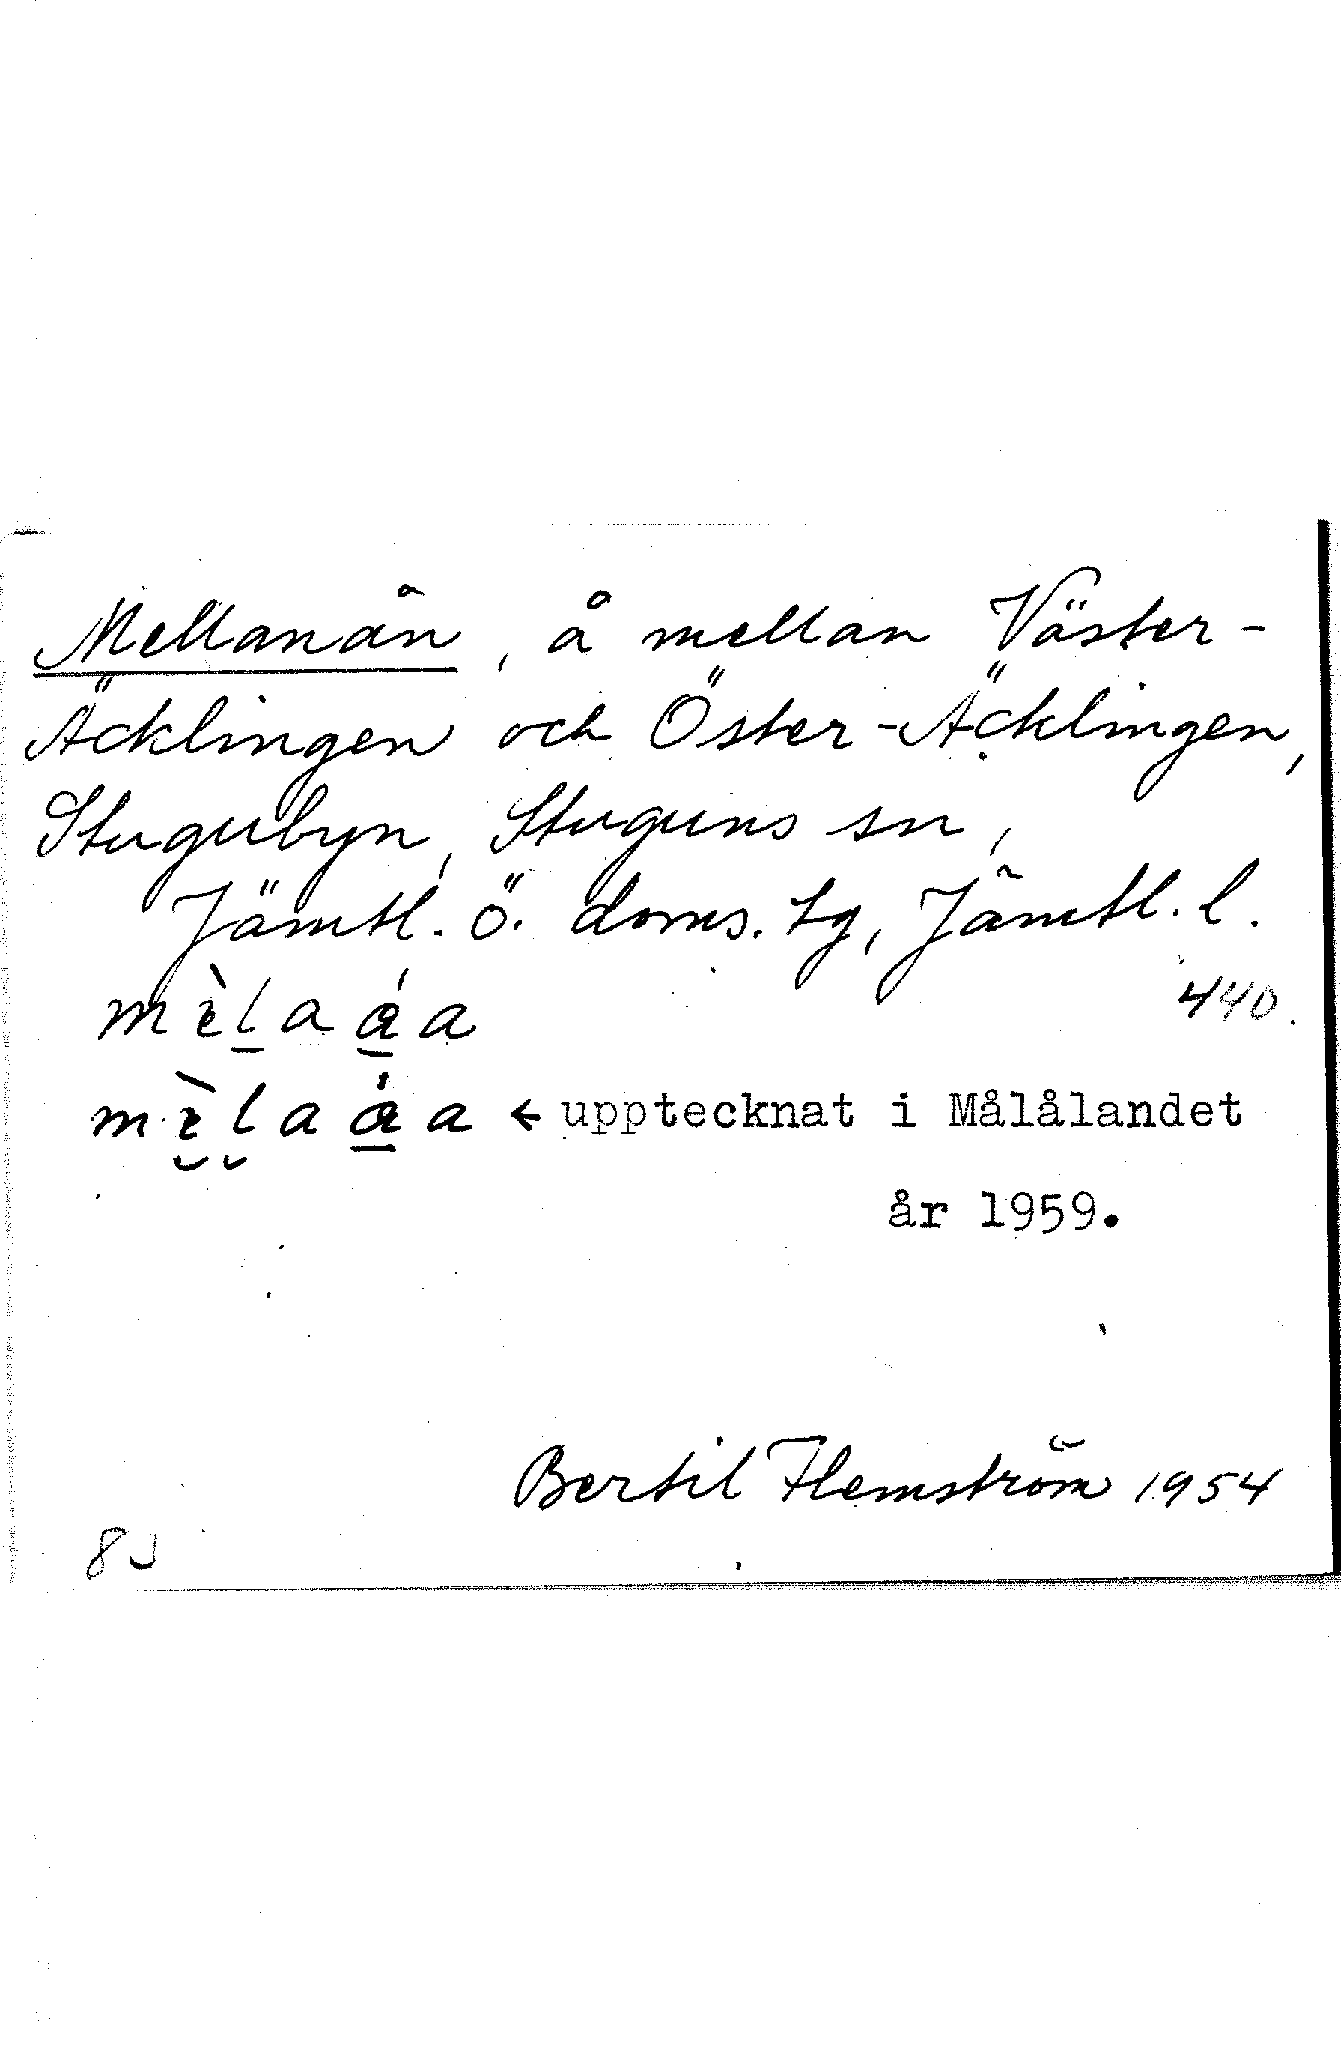 Mellanån, å mellan Väster-
Äcklingen och Öster-Äcklingen,
Stugubyn, Stuguns sn,
Jämtl. ö. doms. tg, Jämtl. l.
440.
← upptecknat i Målålandet
år 1959.
Bertil Flemström 1954